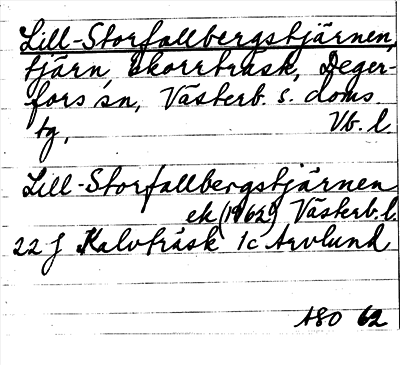 Lill-Storfallbergstjärnen,
tjärn, Skorrträsk, Deger-
fors sn, Västerb. s. doms.
tg, Vb. l.
Lill-Storfallbergstjärnen
ek (1962) Västerb. l.
22 J Kalvträsk 1c Arvlund
ASO 62